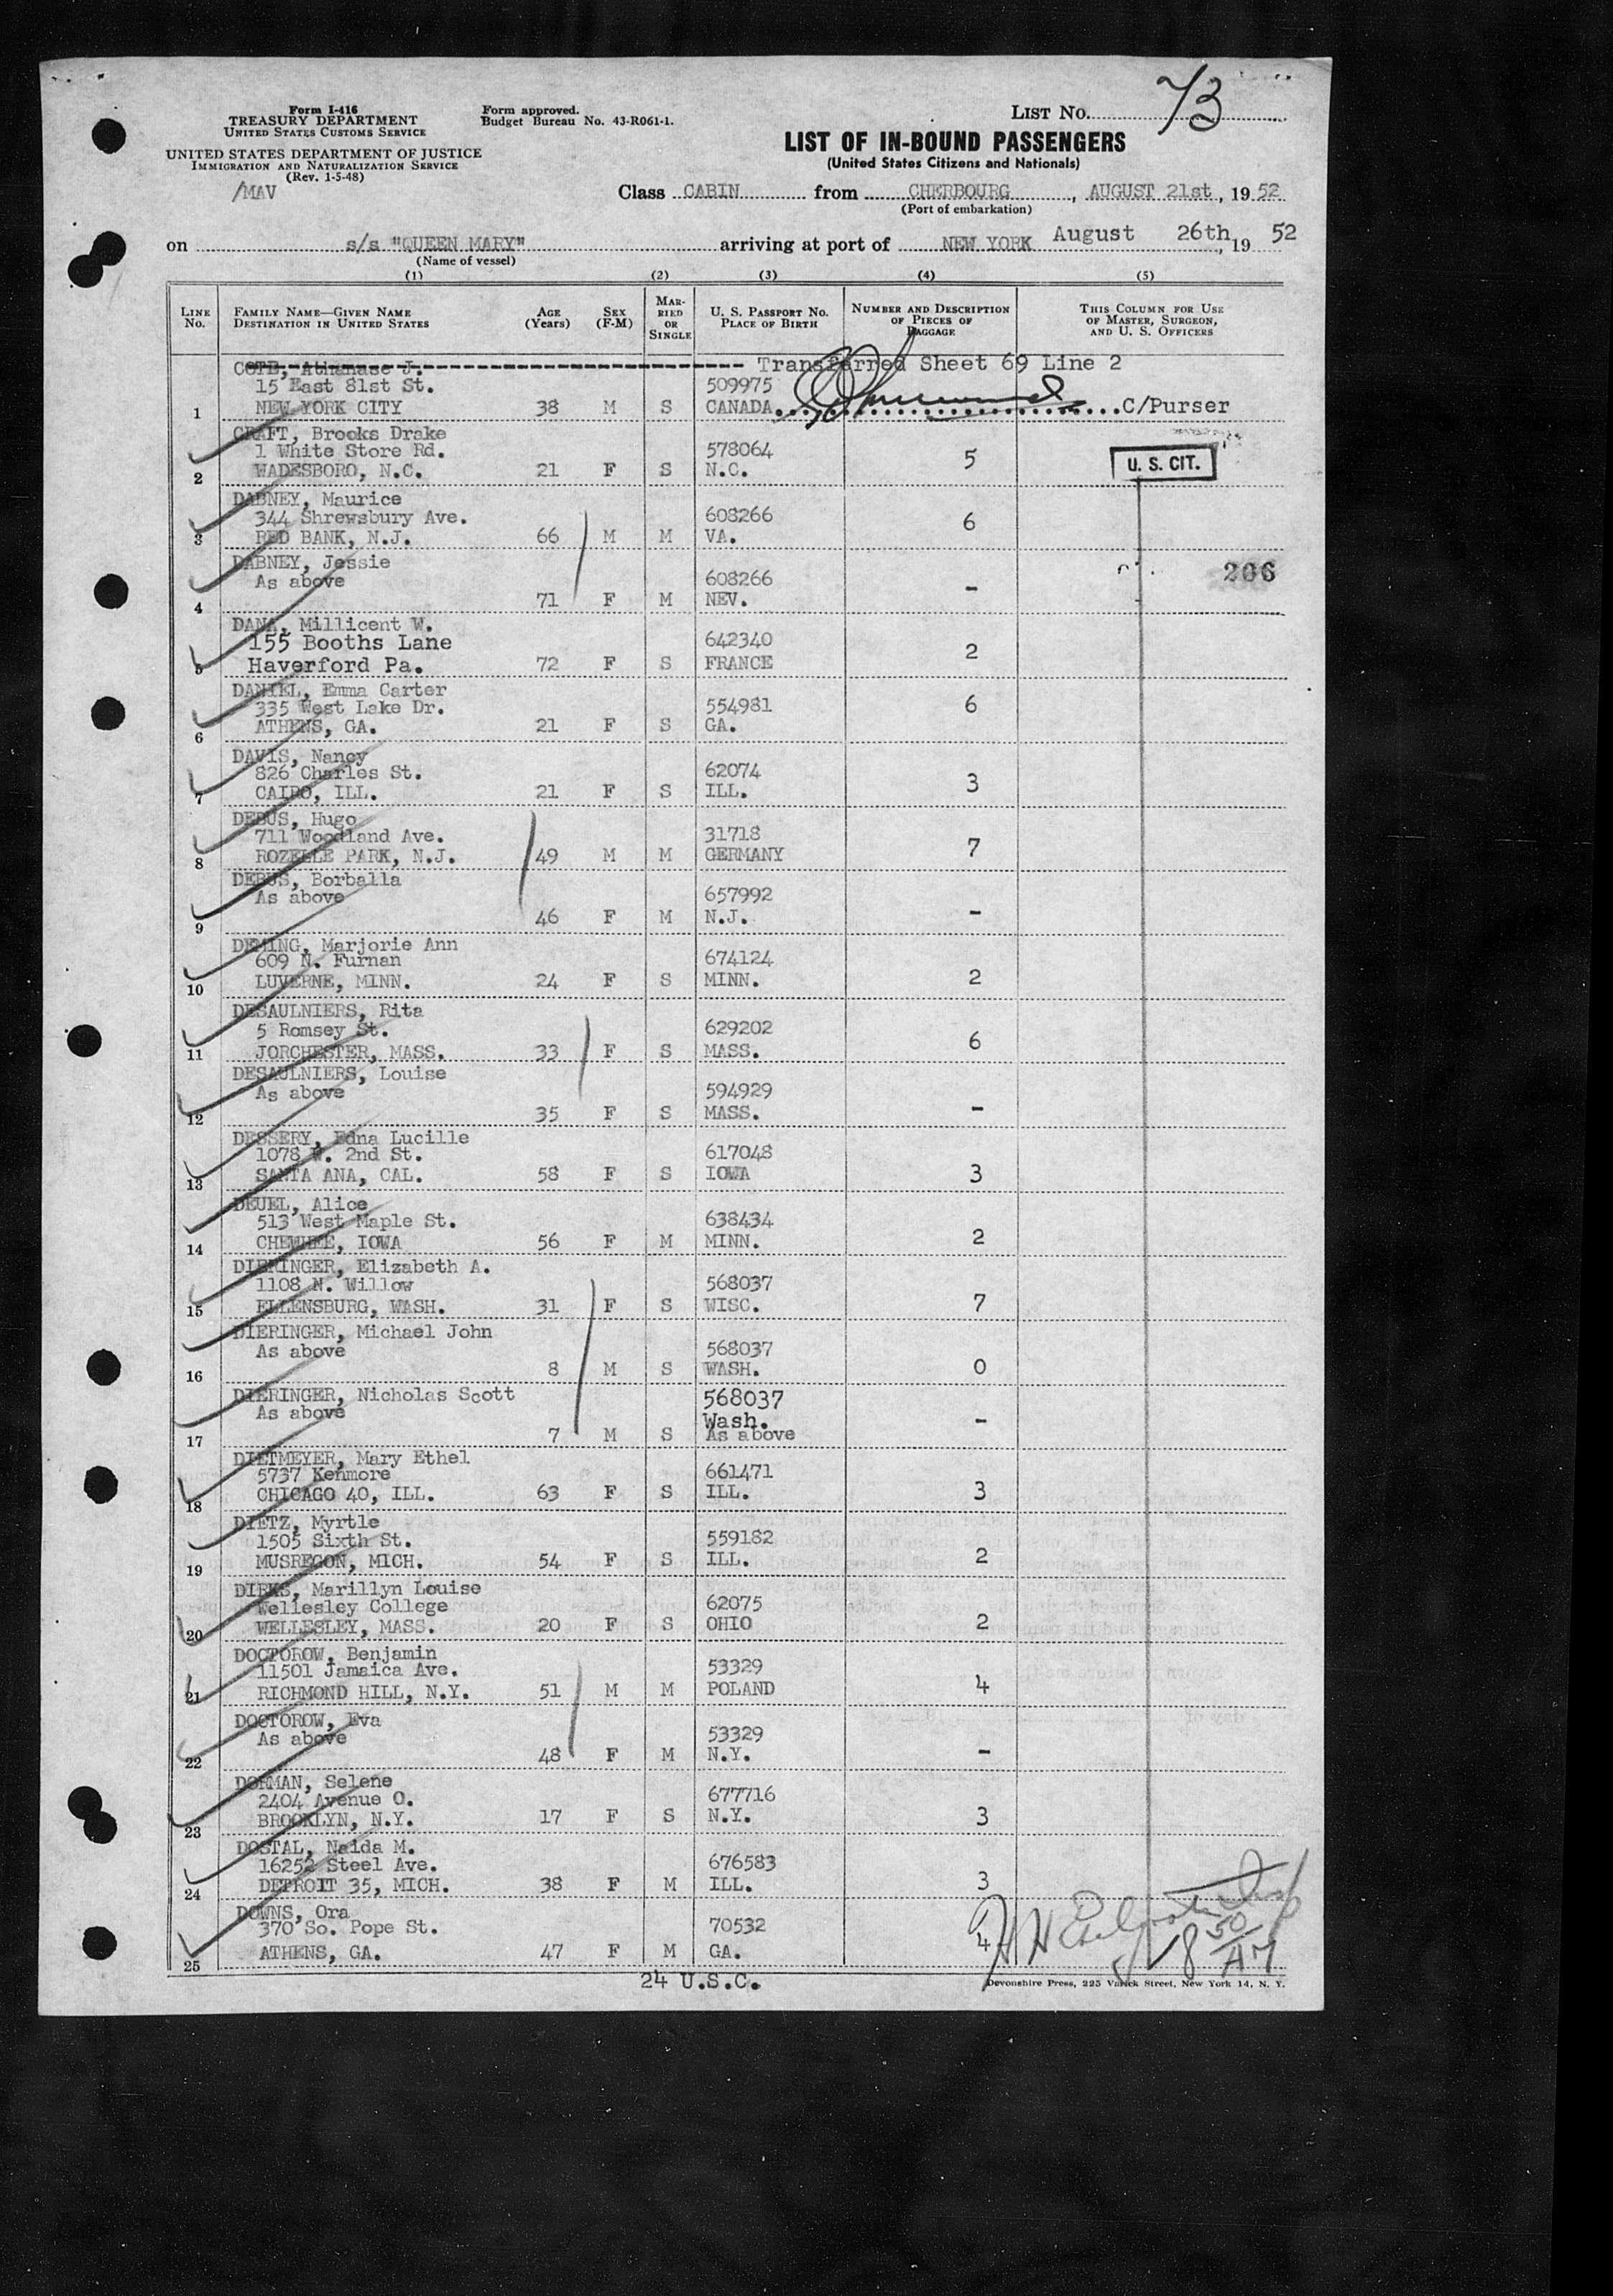 Form I-416
TREASURY DEPARTMENT
UNITED STATES CUSTOMS SERVICE
UNITED STATES DEPARTMENT OF JUSTICE
IMMIGRATION AND NATURALIZATION SERVICE
(Rev. 1-5-48)
/MAV
Form approved.
Budget Bureau No. 43-R061-1.
LIST NO. 73
LIST OF IN-BOUND PASSENGERS
(United States Citizens and Nationals)
Class CABIN from CHERBOURG, AUGUST 21st, 1952
(Port of embarkation)
on s/s "QUEEN MARY" arriving at port of NEW YORK August 26th, 1952
(Name of vessel)
(1) (2) (3) (4) (5)
LINE NO. FAMILY NAME—GIVEN NAME DESTINATION IN UNITED STATES AGE (Years) SEX (F-M) MARRIED OR SINGLE U. S. PASSPORT NO. PLACE OF BIRTH NUMBER AND DESCRIPTION OF PIECES OF BAGGAGE THIS COLUMN FOR USE OF MASTER, SURGEON, AND U. S. OFFICERS
COTE, Athanase J. Transferred Sheet 69 Line 2
15 East 81st St. 509975
1 NEW YORK CITY 38 M S CANADA C/Purser
CRAFT, Brooks Drake
1 White Store Rd. 578064
2 WADESBORO, N.C. 21 F S N.C. 5 U. S. CIT.
DABNEY, Maurice
344 Shrewsbury Ave. 608266
3 RED BANK, N.J. 66 M M VA. 6
DABNEY, Jessie
As above 608266 206
4 71 F M NEV. -
DANA, Millicent W.
155 Booths Lane 642340
5 Haverford Pa. 72 F S FRANCE 2
DANIEL, Emma Carter
335 West Lake Dr. 554981
6 ATHENS, GA. 21 F S GA. 6
DAVIS, Nancy
826 Charles St. 62074
7 CAIRO, ILL. 21 F S ILL. 3
DEBUS, Hugo
711 Woodland Ave. 31718
8 ROZELLE PARK, N.J. 49 M M GERMANY 7
DEBUS, Borballa
As above 657992
9 46 F M N.J. -
DEMING, Marjorie Ann
609 N. Furnan 674124
10 LUVERNE, MINN. 24 F S MINN. 2
DESAULNIERS, Rita
5 Romsey St. 629202
11 JORCHESTER, MASS. 33 F S MASS. 6
DESAULNIERS, Louise
As above 594929
12 35 F S MASS. -
DESSERY, Edna Lucille
1078 W. 2nd St. 617048
13 SANTA ANA, CAL. 58 F S IOWA 3
DEUEL, Alice
513 West Maple St. 638434
14 IOWA 56 F M MINN. 2
DIERINGER, Elizabeth A.
1108 N. Willow 568037
15 ELLENSBURG, WASH. 31 F S WISC. 7
DIERINGER, Michael John
As above 568037
16 8 M S WASH. 0
DIERINGER, Nicholas Scott
As above 568037
Wash. -
17 7 M S As above
DIETMEYER, Mary Ethel
5737 Kenmore 661471
18 CHICAGO 40, ILL. 63 F S ILL. 3
DIETZ, Myrtle
1505 Sixth St. 559182
19 MUSREGON, MICH. 54 F S ILL. 2
DIEKS, Marillyn Louise
Wellesley College 62075
20 WELLESLEY, MASS. 20 F S OHIO 2
DOCTOROW, Benjamin
11501 Jamaica Ave. 53329
21 RICHMOND HILL, N.Y. 51 M M POLAND 4
DOCTOROW, Eva
As above 53329
22 48 F M N.Y. -
DORMAN, Selene
2404 Avenue O. 677716
23 BROOKLYN, N.Y. 17 F S N.Y. 3
DOSTAL, Naida M.
16252 Steel Ave. 676583
24 DETROIT 35, MICH. 38 F M ILL. 3
DOWNS, Ora
370 So. Pope St. 70532
25 ATHENS, GA. 47 F M GA. 4
24 U.S.C.
Devonshire Press, 225 Varick Street, New York 14, N. Y.